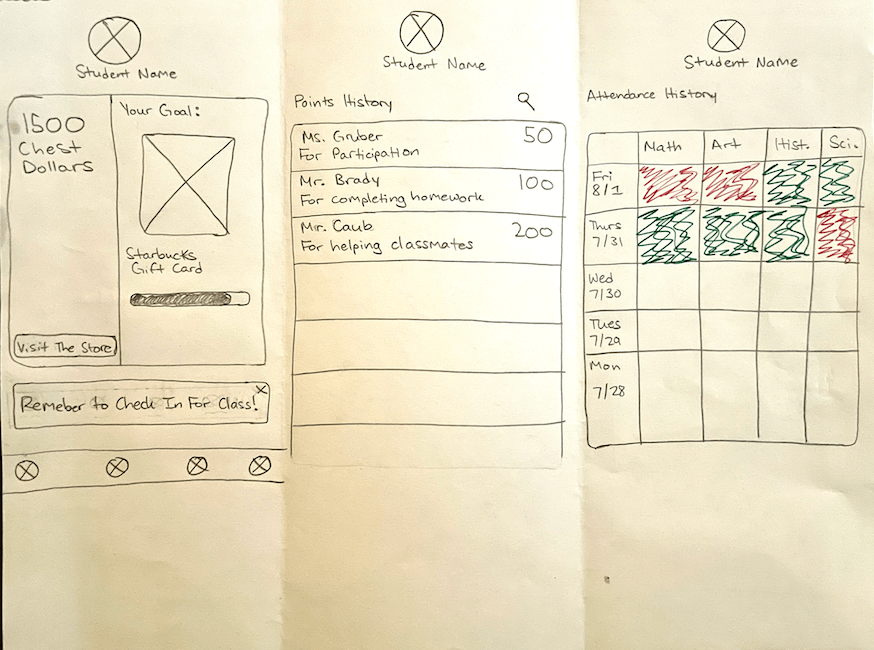 Student Name
1500
Chest
Dollars
Visit The Store
Your Goal:
Starbucks
Gift Card
Remeber to Check In For Class!
Student Name
Points History
Ms. Gruber 50
For Participation
Mr. Brady 100
For completing homework
Mr. Caub 200
For helping classmates
Student Name
Attendance History
Math Art Hist. Sci.
Fri
8/1
Thurs
7/31
Wed
7/30
Tues
7/29
Mon
7/28